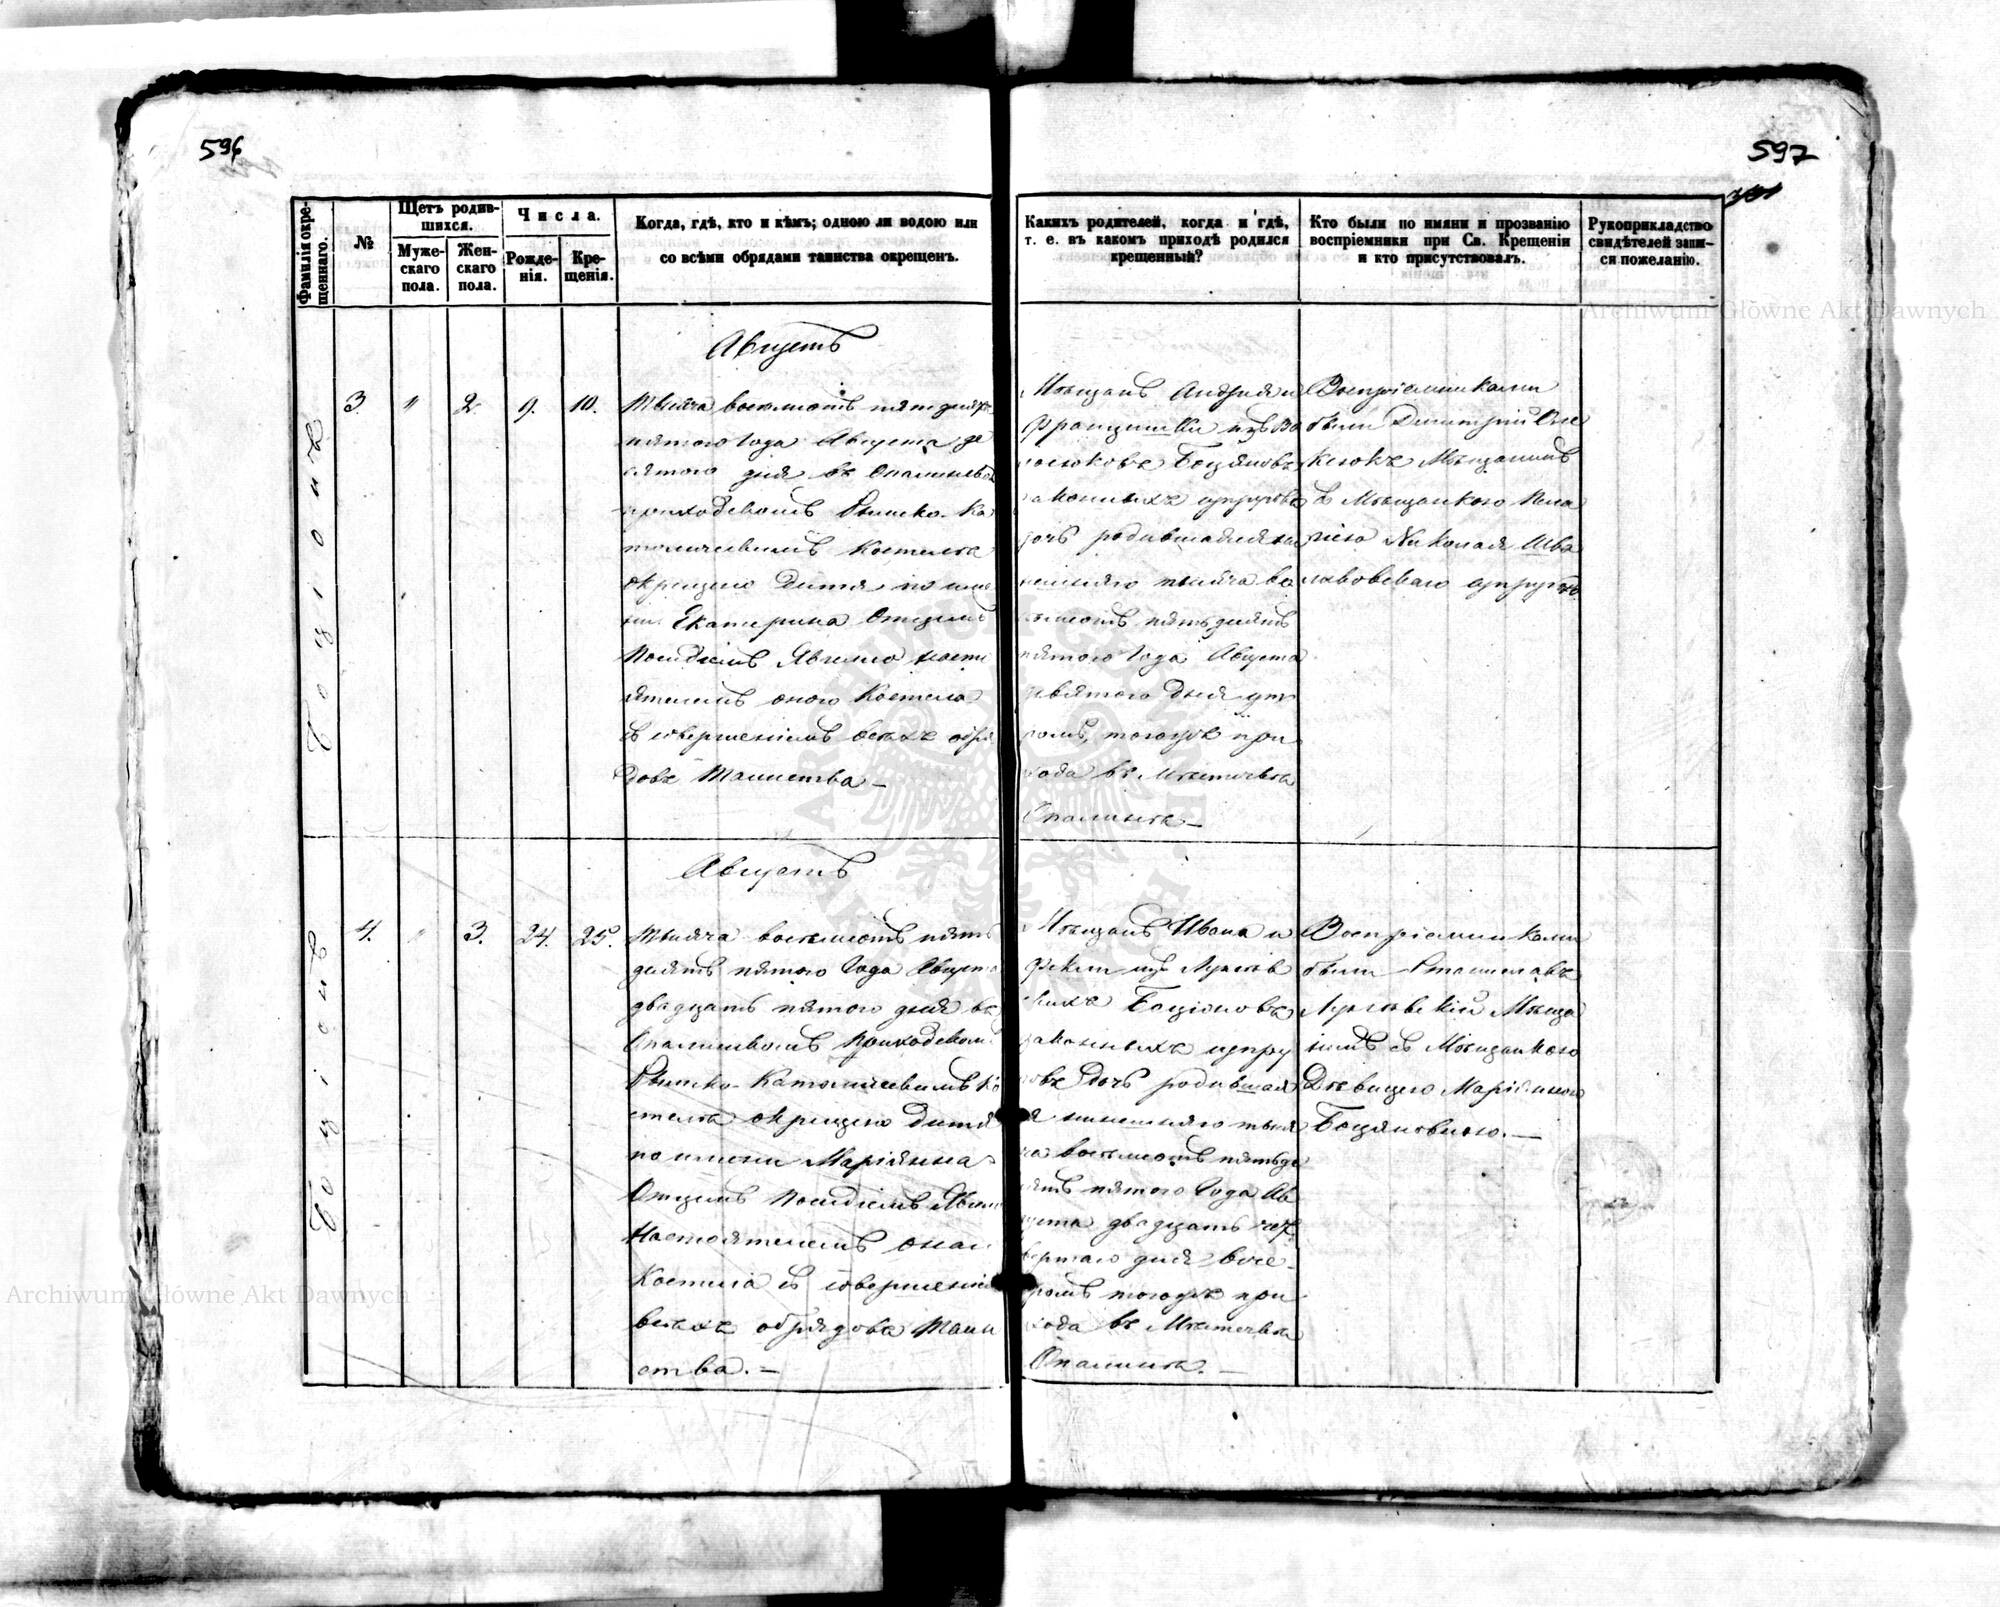 596
597
Фамилія окре-
щеннаго.
№
Щетъ родив-
шихся.
Муже-
скаго
пола.
Жен-
скаго
пола.
Числа.
Рожде-
нія.
Кре-
щенія.
Когда, гдѣ, кто и кѣмъ; одною ли водою или
со всѣми обрядами таинства окрещенъ.
Каких родителей, когда и гдѣ,
т. е. въ каком приходѣ родился
крещенный?
Кто были по имяни и прозванію
воспріемники при Св. Крещеніи
и кто присутствовалъ.
Рукоприкладство
свидѣтелей запи-
си пожеланію.
Archiwum Główne Akt Dawnych
Августъ
3. " 2. 9. 10.
Тысяча восемсотъ пятдесятъ
пятого Года Августа де
сятого дня въ
приходскомъ Римско-Ка
толическомъ Костелѣ
окрещено Дитя по име
ни Екатерина Отцемъ
настo
ятелемъ оного Костела
съ совершеніемъ всѣхъ обря
довъ Таинства –
Мѣщанъ Андрея и
Францишки изъ
Боцяновъ
законныхъ супруговъ
дочь родившаяся ны
нешняго тысяча во
семсотъ пятьдесятъ
пятого Года Августа
девятого дня ут
ромъ, тогожъ при
хода въ Мѣстечкѣ
Воспріемниками
были Димитрій
Мѣщанинъ
съ Мѣщанкою
Николая
супругою
Августъ
4. " 3. 24. 25.
Тысяча восемсотъ пять
десятъ пятого Года Августа
двадцать пятого дня въ
приходском
Римско-Католическимъ Ко
стелѣ окрещено Дитя
по имени Маріянна
Отцемъ
Настоятелемъ оного
Костела съ совершеніем
всѣхъ обрядовъ Таин
ства. –
Мѣщанъ Ивана и
Фекли изъ
Боціоновъ
законныхъ супру
говъ Дочь родившая
ся нынешняго тыся
ча восемсотъ пятьде
сятъ пятого Года Ав
густа двадцать чет
вертаго дня вече
ромъ тогожъ при
хода въ Мѣстечкѣ
Воспріемниками
были Станиславъ
Мѣща
нинъ съ Мѣщанкою
Дѣвицею Маріянною
Боцяновною. –
Archiwum Główne Akt Dawnych